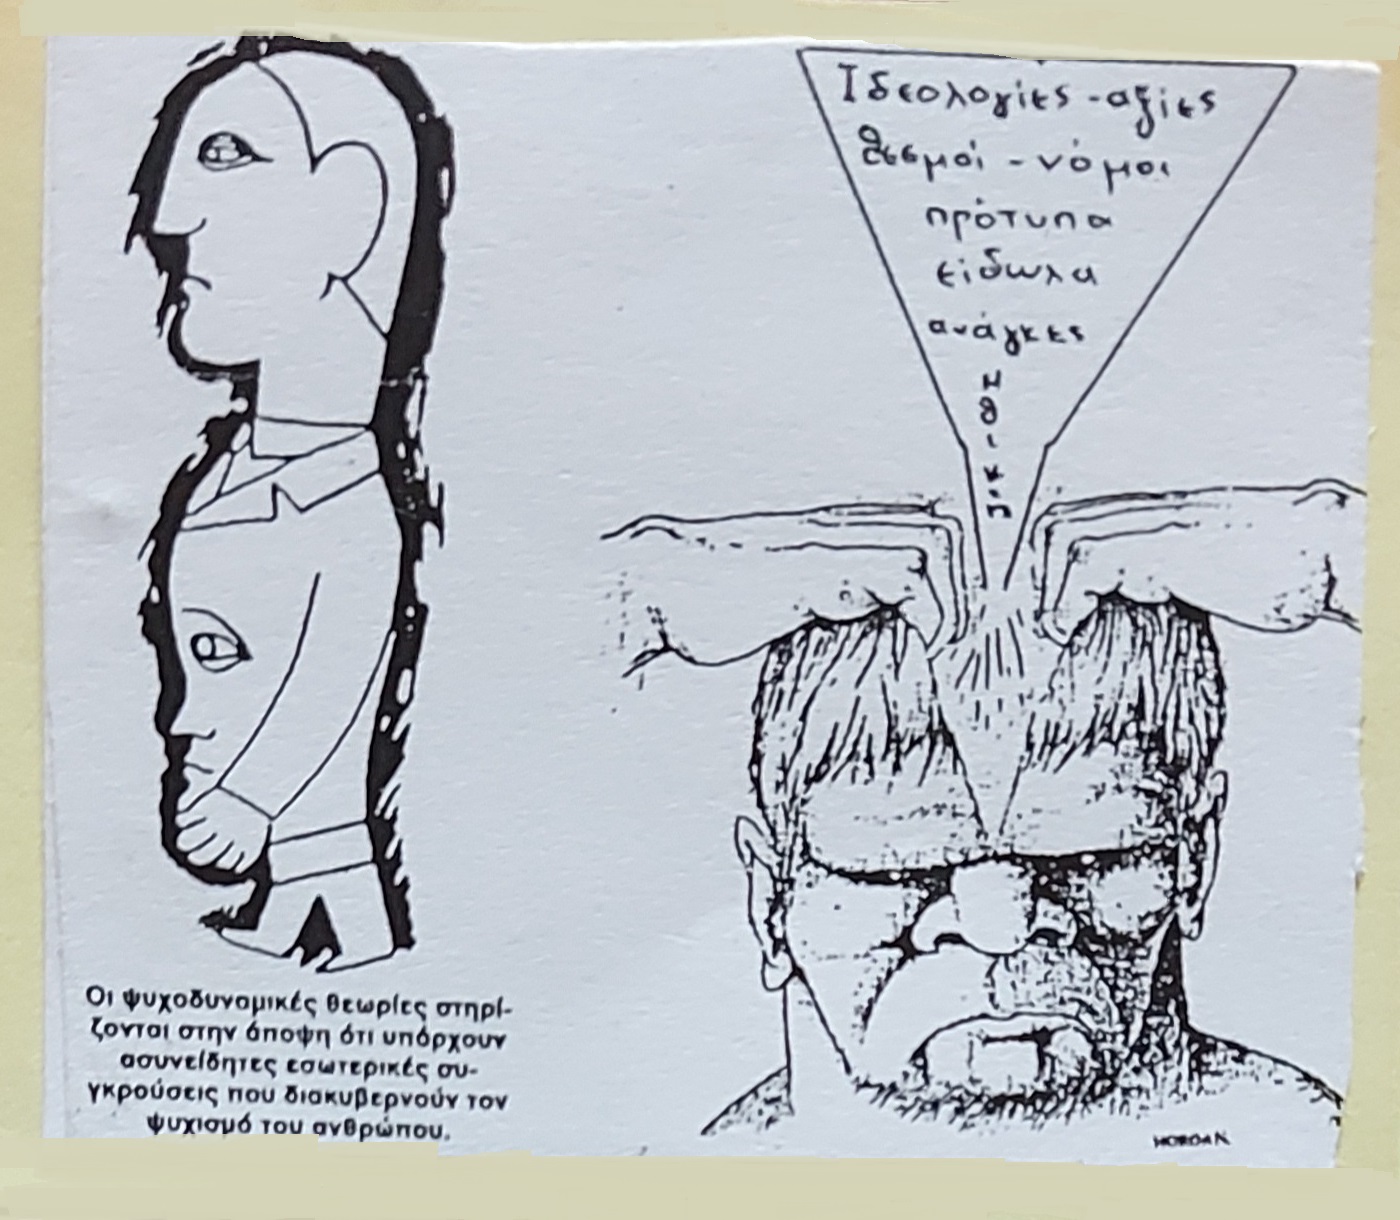 Ιδεολογίες - αξίες
θεσμοί - νόμοι
πρότυπα
είδωλα
ανάγκες
ηθική
Οι ψυχοδυναμικές θεωρίες στηρί-
ζονται στην άποψη ότι υπάρχουν
ασυνείδητες εσωτερικές συ-
γκρούσεις που διακυβερνούν τον
ψυχισμό του ανθρώπου.